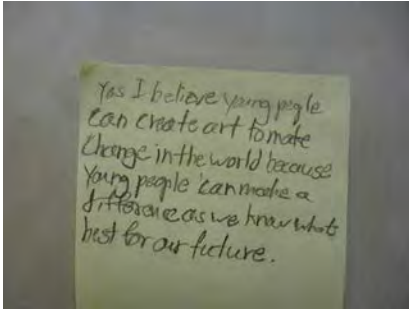 Yes I believe young people
can create art to make
change in the world because
Young people can make a
difference as we know whats
best for our future.